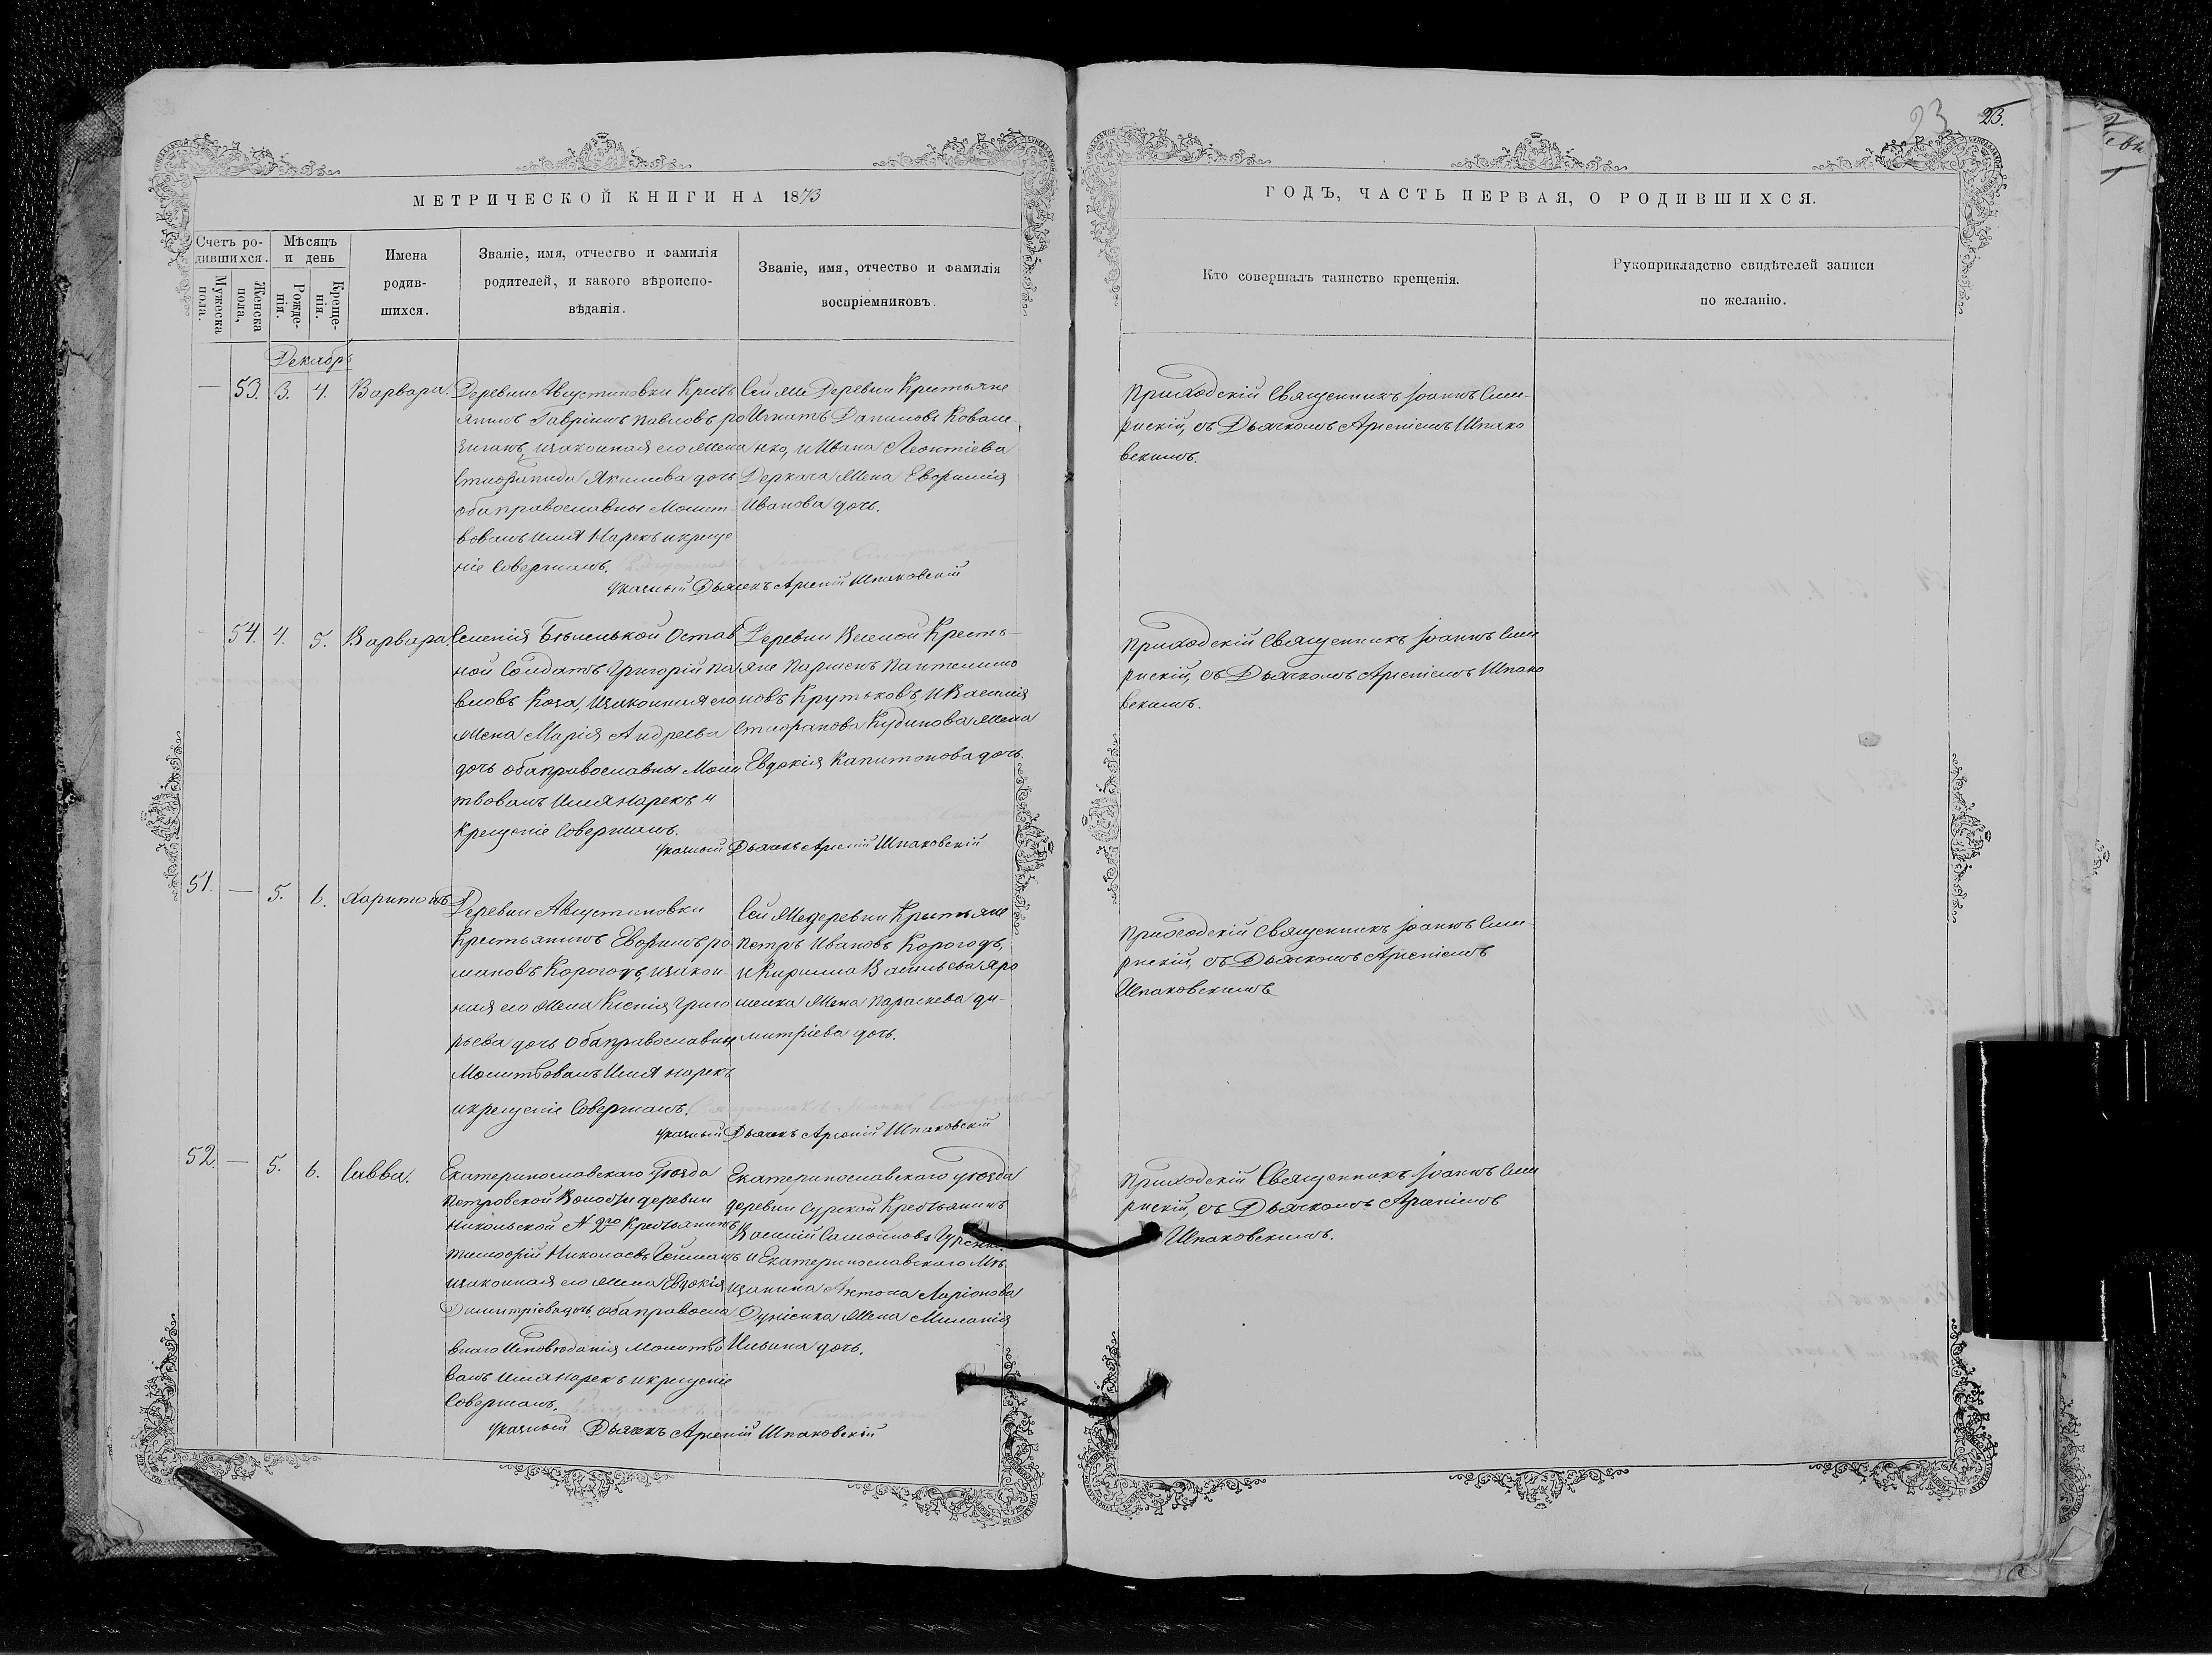 23 23.
МЕТРИЧЕСКОЙ КНИГИ НА 1873
ГОДЪ, ЧАСТЬ ПЕРВАЯ, О РОДИВШИХСЯ.
Счетъ ро-
дившихся.
Мужеска пола.
Женска пола,
Мѣсяцъ
и день
Рожде-
нія.
Креще-
нія.
Имена
родив-
шихся.
Званіе, имя, отчество и фамилія
родителей, и какого вѣроиспо-
вѣданія.
Званіе, имя, отчество и фамилія
воспріемниковъ.
Кто совершалъ таинство крещенія.
Рукоприкладство свидѣтелей записи
по желанію.
Декабрь
— 53. 3. 4. Варвара.
Деревни Августиновки Кресть
янинъ Гавріилъ Павловъ
изаконная его жена
Якимова дочь
оба православны Молит-
вовалъ Имя Нарекъ и креще
ніе Совершалъ.
Указный Дьячекъ Арсеній Шпаковскій
Сей же Деревни Крестьяне
Игнатъ Даниловъ Ковале-
нко, и Ивана Леонтіева
Деркача жена Евфимія
Иванова дочь.
Приходскій Священникъ Іоаннъ Сми-
рнскій, съ Дьячкомъ Арсеніемъ Шпако
вскимъ.
54. 4. 5. Варвара.
Селенія Бѣленькой Отстав
ной Солдатъ Григорій Па
вловъ Коза, Изаконная его
жена Марія Андреева
дочь оба православны Моли
твовалъ Имя нарекъ и
Крещеніе Совершалъ.
Указный Дьячекъ Арсеній Шпаковскій
Деревни Крестъ-
яне Парменъ Пантелимо
новъ Крутьковъ, и Василія
Стефанова Кудинова жена
Евдокія Капитонова дочь.
Приходскій Священникъ Іоаннъ Сми
рнскій, съ Дьячкомъ Арсеніемъ Шпако
вскимъ.
51. — 5. 6. Харитонъ
Деревни Августиновки
Крестьянинъ Евфимъ Ро
мановъ Корогодъ, изакон-
ная его жена Ксенія Григо
рьева дочь оба православны
Молитвовалъ Имя нарекъ
и крещеніе Совершалъ.
Указный Дьячекъ Арсеній Шпаковскій
Сей же деревни Крестьяне
Петръ Ивановъ Корогодъ,
и Кирилла Васильева Яро
шенка жена Параскева Ди-
митріева дочь.
Приходскій Священникъ Іоаннъ Сми-
рнскій, съ Дьячкомъ Арсеніемъ
Шпаковскимъ
52. — 5. 6. Савва.
Екатеринославскаго Уѣзда
Петровской Волости деревни
Никольской N 2го Крестьянинъ
Тимофій Николаевъ
изаконная его жена Евдокія
Димитріева дочь, оба правосла
внаго Исповѣданія Молитво
валъ имя нарекъ и крещеніе
Совершалъ.
Указный Дьячекъ Арсеній Шпаковскій
Екатеринославскаго уѣзда
деревни Сурской Крестьянинъ
Василій Самойловъ
и Екатеринославскаго Мѣ
щанина Антона Ларіонова
жена Миланія
Ильина дочь.
Приходскій Священникъ Іоаннъ Сми
рнскій, съ Дьячкомъ Арсеніемъ
Шпаковскимъ.